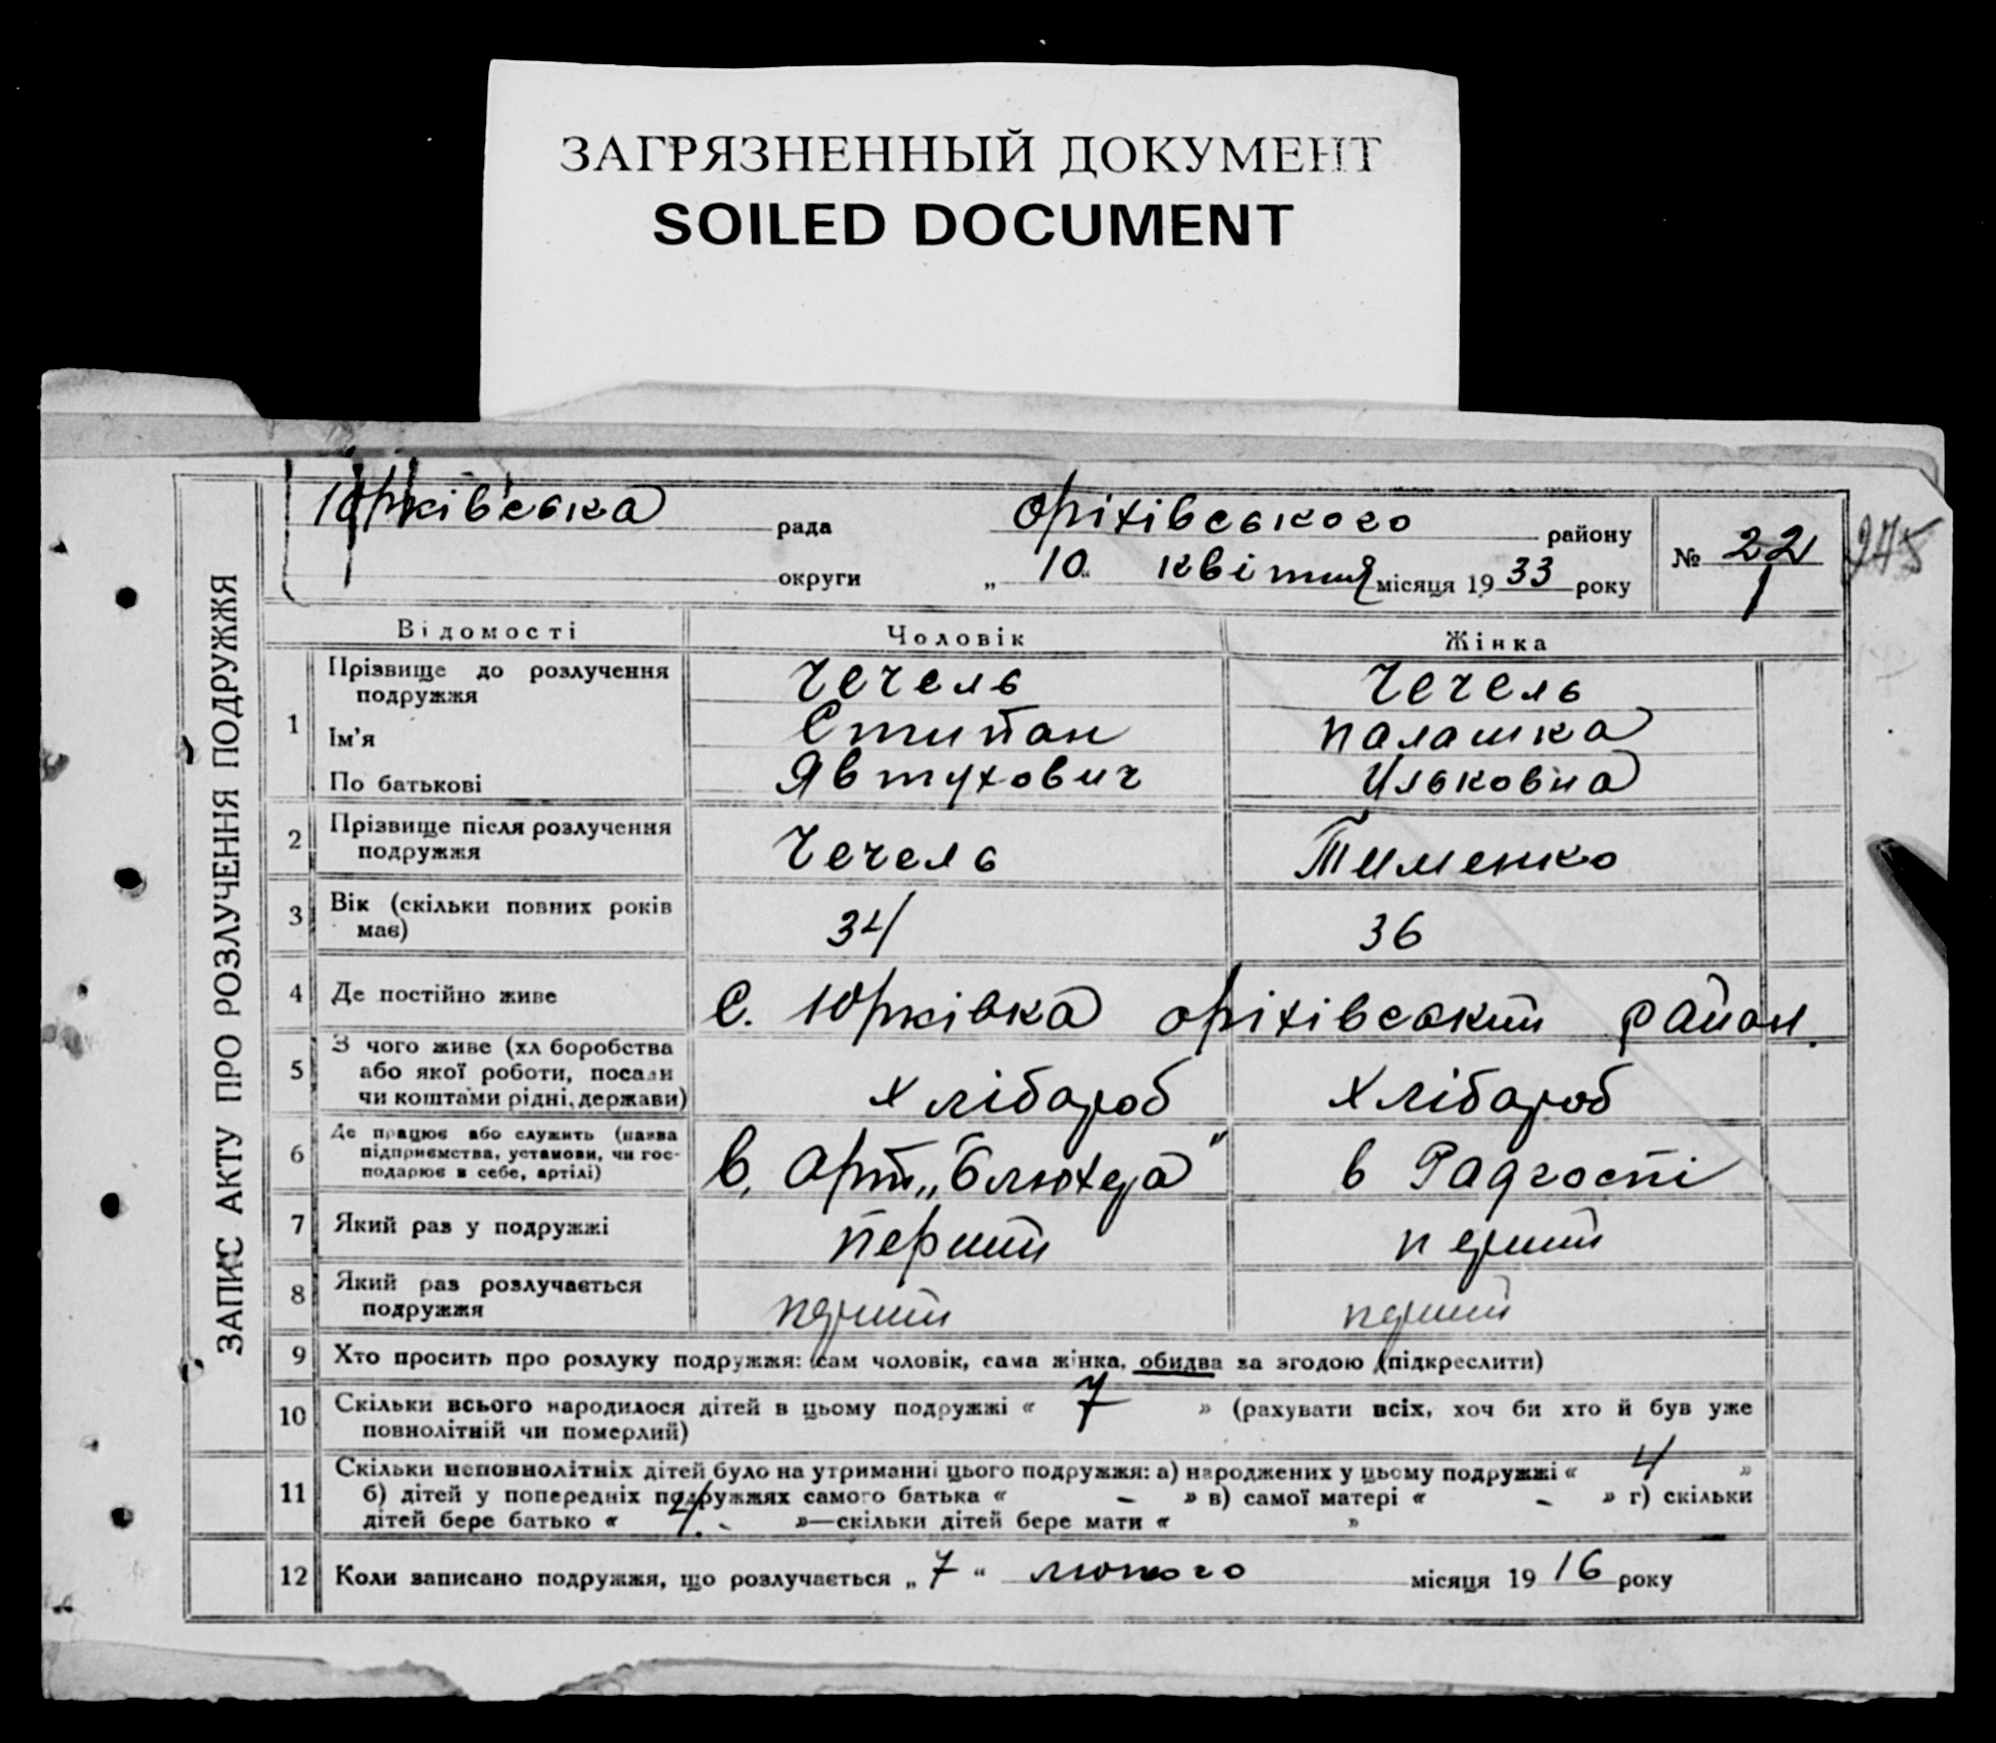 ЗАГРЯЗНЕННЫЙ ДОКУМЕНТ
SOILED DOCUMENT
ЗАПИС АКТУ ПРО РОЗЛУЧЕННЯ ПОДРУЖЖЯ
Юрківська рада Оріхівського району № 22 275
округи „ 10 “ квітня місяця 1933 року
Відомості Чоловік Жінка
1 Прізвище до розлучення подружжя Чечель Чечель
Ім’я Степан палашка
По батькові Явтухович Ильковна
2 Прізвище після розлучення подружжя Чечель Тименко
3 Вік (скільки повних років має) 34 36
4 Де постійно живе С. Юрківка оріхівський район
5 З чого живе (хл боробства
або якої роботи, посади
чи коштами рідні, держави) хлібароб хлібароб
6 Де працює або служить (назва
підприємства, установи, чи гос-
подарює в себе, артілі) в. арт. „Блюхера“ в Радгоспі
7 Який раз у подружжі перший перший
8 Який раз розлучається
подружжя перший перший
9 Хто просить про розлуку подружжя: сам чоловік, сама жінка, обидва за згодою (підкреслити)
10 Скільки всього народилося дітей в цьому подружжі « 7 » (рахувати всіх, хоч би хто й був уже
повнолітній чи померлий)
11 Скільки неповнолітніх дітей було на утриманні цього подружжя: а) народжених у цьому подружжі « 4 »
б) дітей у попередніх подружжях самого батька « – » в) самої матері « – » г) скільки
дітей бере батько « 4. »—скільки дітей бере мати « »
12 Коли записано подружжя, що розлучається „ 7 “ лютого місяця 1916 року